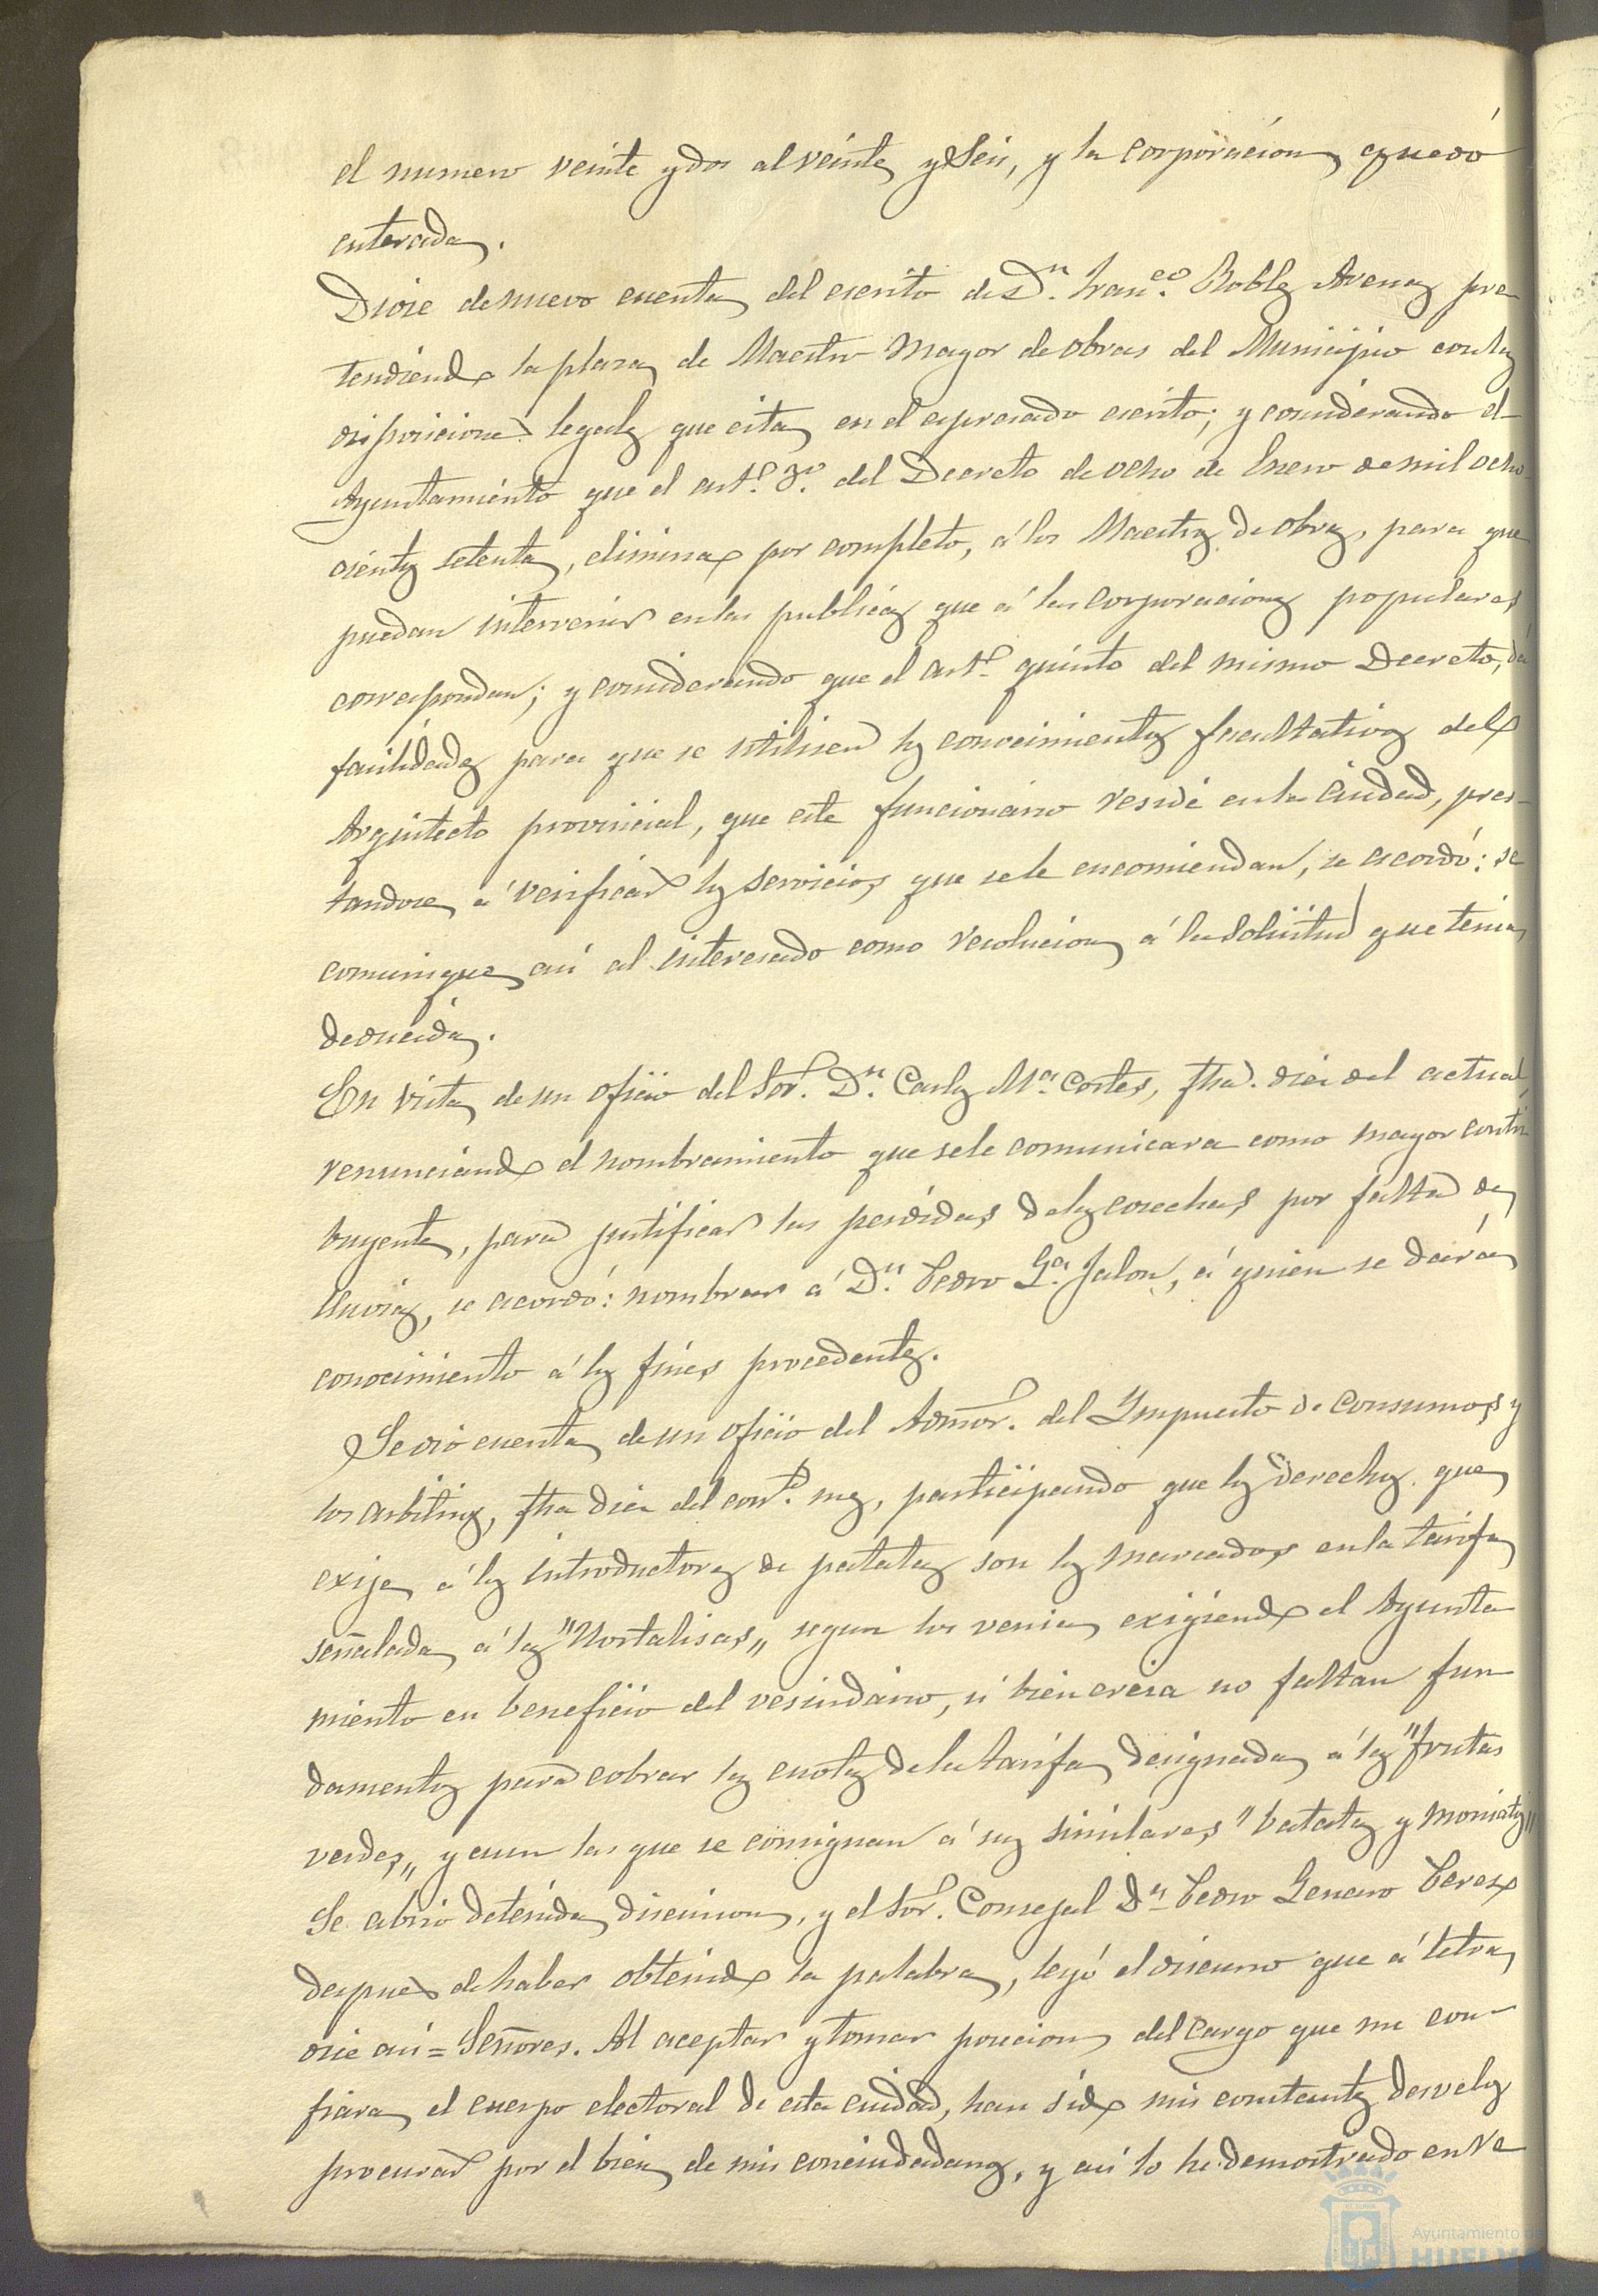 el numero veinte y dos al veinte y Seis, y la corporación quedó
enterada.
Diose de nuevo cuenta del escrito de Dn. Franco. Robles Arenas pre
tendiendo la plaza de Maestro Mayor de obras del Municipio con las
disposiciones legales que cita en el espresado escrito; y considerando el
Ayuntamiento que el artº. 3º. del Decreto de ocho de Enero de mil ocho-
cientos setenta, elimina por completo, á los Maestros de obras, para que
puedan intervenir en las publicas que á las corporaciones populares
correspondan; y considerando que el artº. quinto del mismo Decreto, dá
facilidades para que se utilisen los conocimientos facultativos del
Arquitecto provincial, que este funcionario reside en la Ciudad, pres-
tandose á verificar los servicios que se le encomiendan, se acordó: se
comunique así al interesado como resolucion á la Solicitud que tenia
deducida.
En vista de un oficio del Sor. Dn. Carlos Ma. Cortes, fha. diez del actual,
renunciando el nombramiento que se le comunicara como mayor contri
buyente, para justificar las perdidas de las cosechas por falta de
lluvias, se acordó: nombrar á Dn. Pedro Ga. Jalon, á quien se dará
conocimiento á los fines procedentes.
Se dió cuenta de un oficio del Admor. del Ympuesto de Consumos y
los arbitrios, fha diez del corte. mes, participando que los derechos que
exije á los introductores de patatas son los marcados en la tarifa
señalada á las "Hortalisas" segun los venia exigiendo el Ayunta
miento en beneficio del vesindario, si bien creia no faltan fun
damentos para cobrar las cuotas de la tarifa designada á las "frutas
verdes" y aun las que se consignan á sus similares "batatas y moniatos"
Se abrió detenida discusion, y el Sor. Consejal Dn. Pedro Genaro Perez
despues de haber obtenido la palabra, leyó el discurso que á letra
dice así = Señores. Al aceptar y tomar posecion del Cargo que me con-
fiara el cuerpo electoral de esta ciudad, han sido mis constantes desvelos
procurar por el bien de mis conciudadanos, y así lo he demostrado en re
Ayuntamiento de
HUELVA